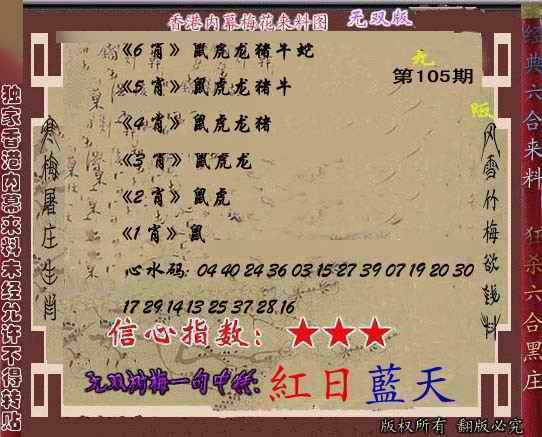 香港内幕梅花来料图 无双版
《6肖》鼠虎龙猪牛蛇
无
第105期
《5肖》鼠虎龙猪牛
版
《4肖》鼠虎龙猪
《3肖》鼠虎龙
《2肖》鼠虎
《1肖》鼠
心水码: 04 40 24 36 03 15 27 39 07 19 20 30
17 29 14 13 25 37 28.16
信心指数：★★★
紅日藍天
版权所有 翻版必究
独家香港内幕来料未经允许不得转贴
寒梅屠庄生肖
风雪竹梅欲钱料
经典六合来料 狂杀六合黑庄